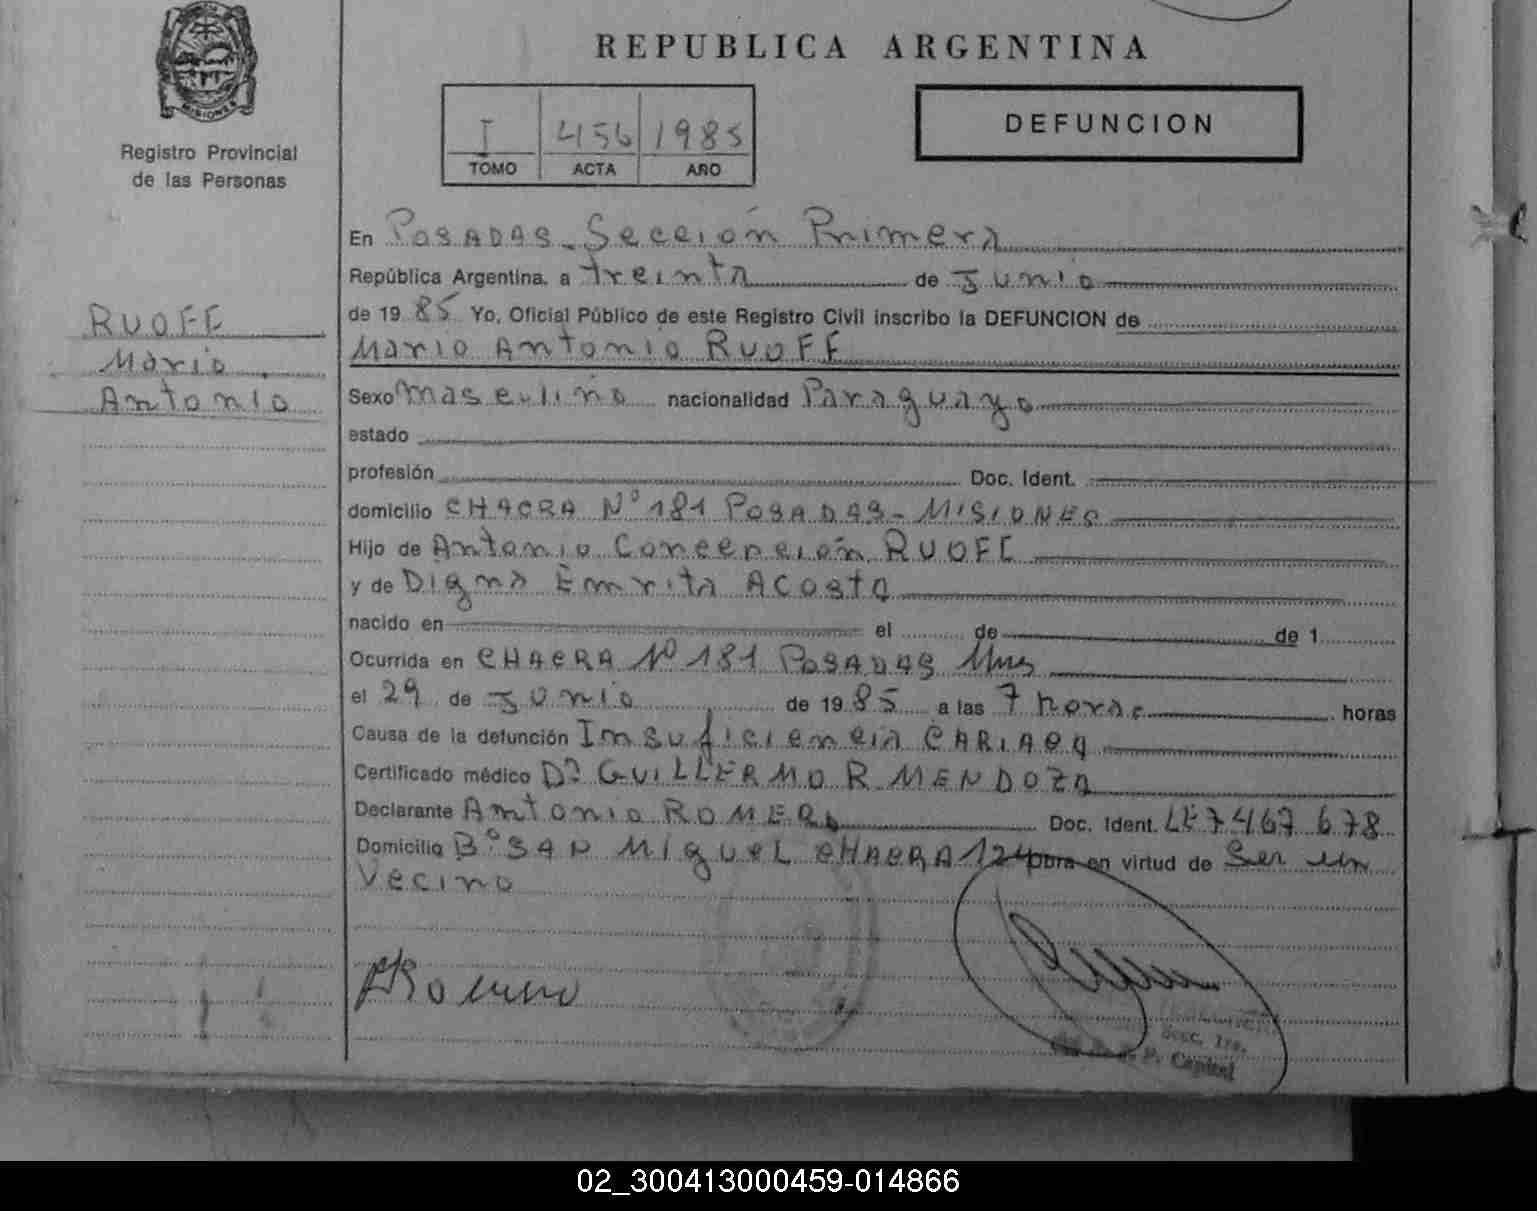 MISIONES
Registro Provincial
de las Personas
RUOFF
Mario
Antonio
REPUBLICA ARGENTINA
I 456 1985
TOMO ACTA AÑO
DEFUNCION
En POSADAS - Sección Primera
República Argentina, a treinta de Junio
de 19 85 Yo, Oficial Público de este Registro Civil inscribo la DEFUNCION de
Mario Antonio RUOFF
Sexo masculino nacionalidad Paraguayo
estado
profesión Doc. Ident.
domicilio CHACRA Nº 181 POSADAS - MISIONES
Hijo de Antonio Concepción RUOFF
y de Digna Emrita ACOSTA
nacido en el de de 1
Ocurrida en CHACRA Nº 181 POSADAS Mnes
el 29 de Junio de 19 85 a las 7 horas horas
Causa de la defunción Insuficiencia CARIACA
Certificado médico Dr GUILLERMO R MENDOZA
Declarante Antonio ROMERO Doc. Ident. LE 7467678
Domicilio Bº SAN MIGUEL CHACRA 124 obra en virtud de Ser un
Vecino
ARomero
Secc. 1ra.
R. P. P. Capital
02_300413000459-014866